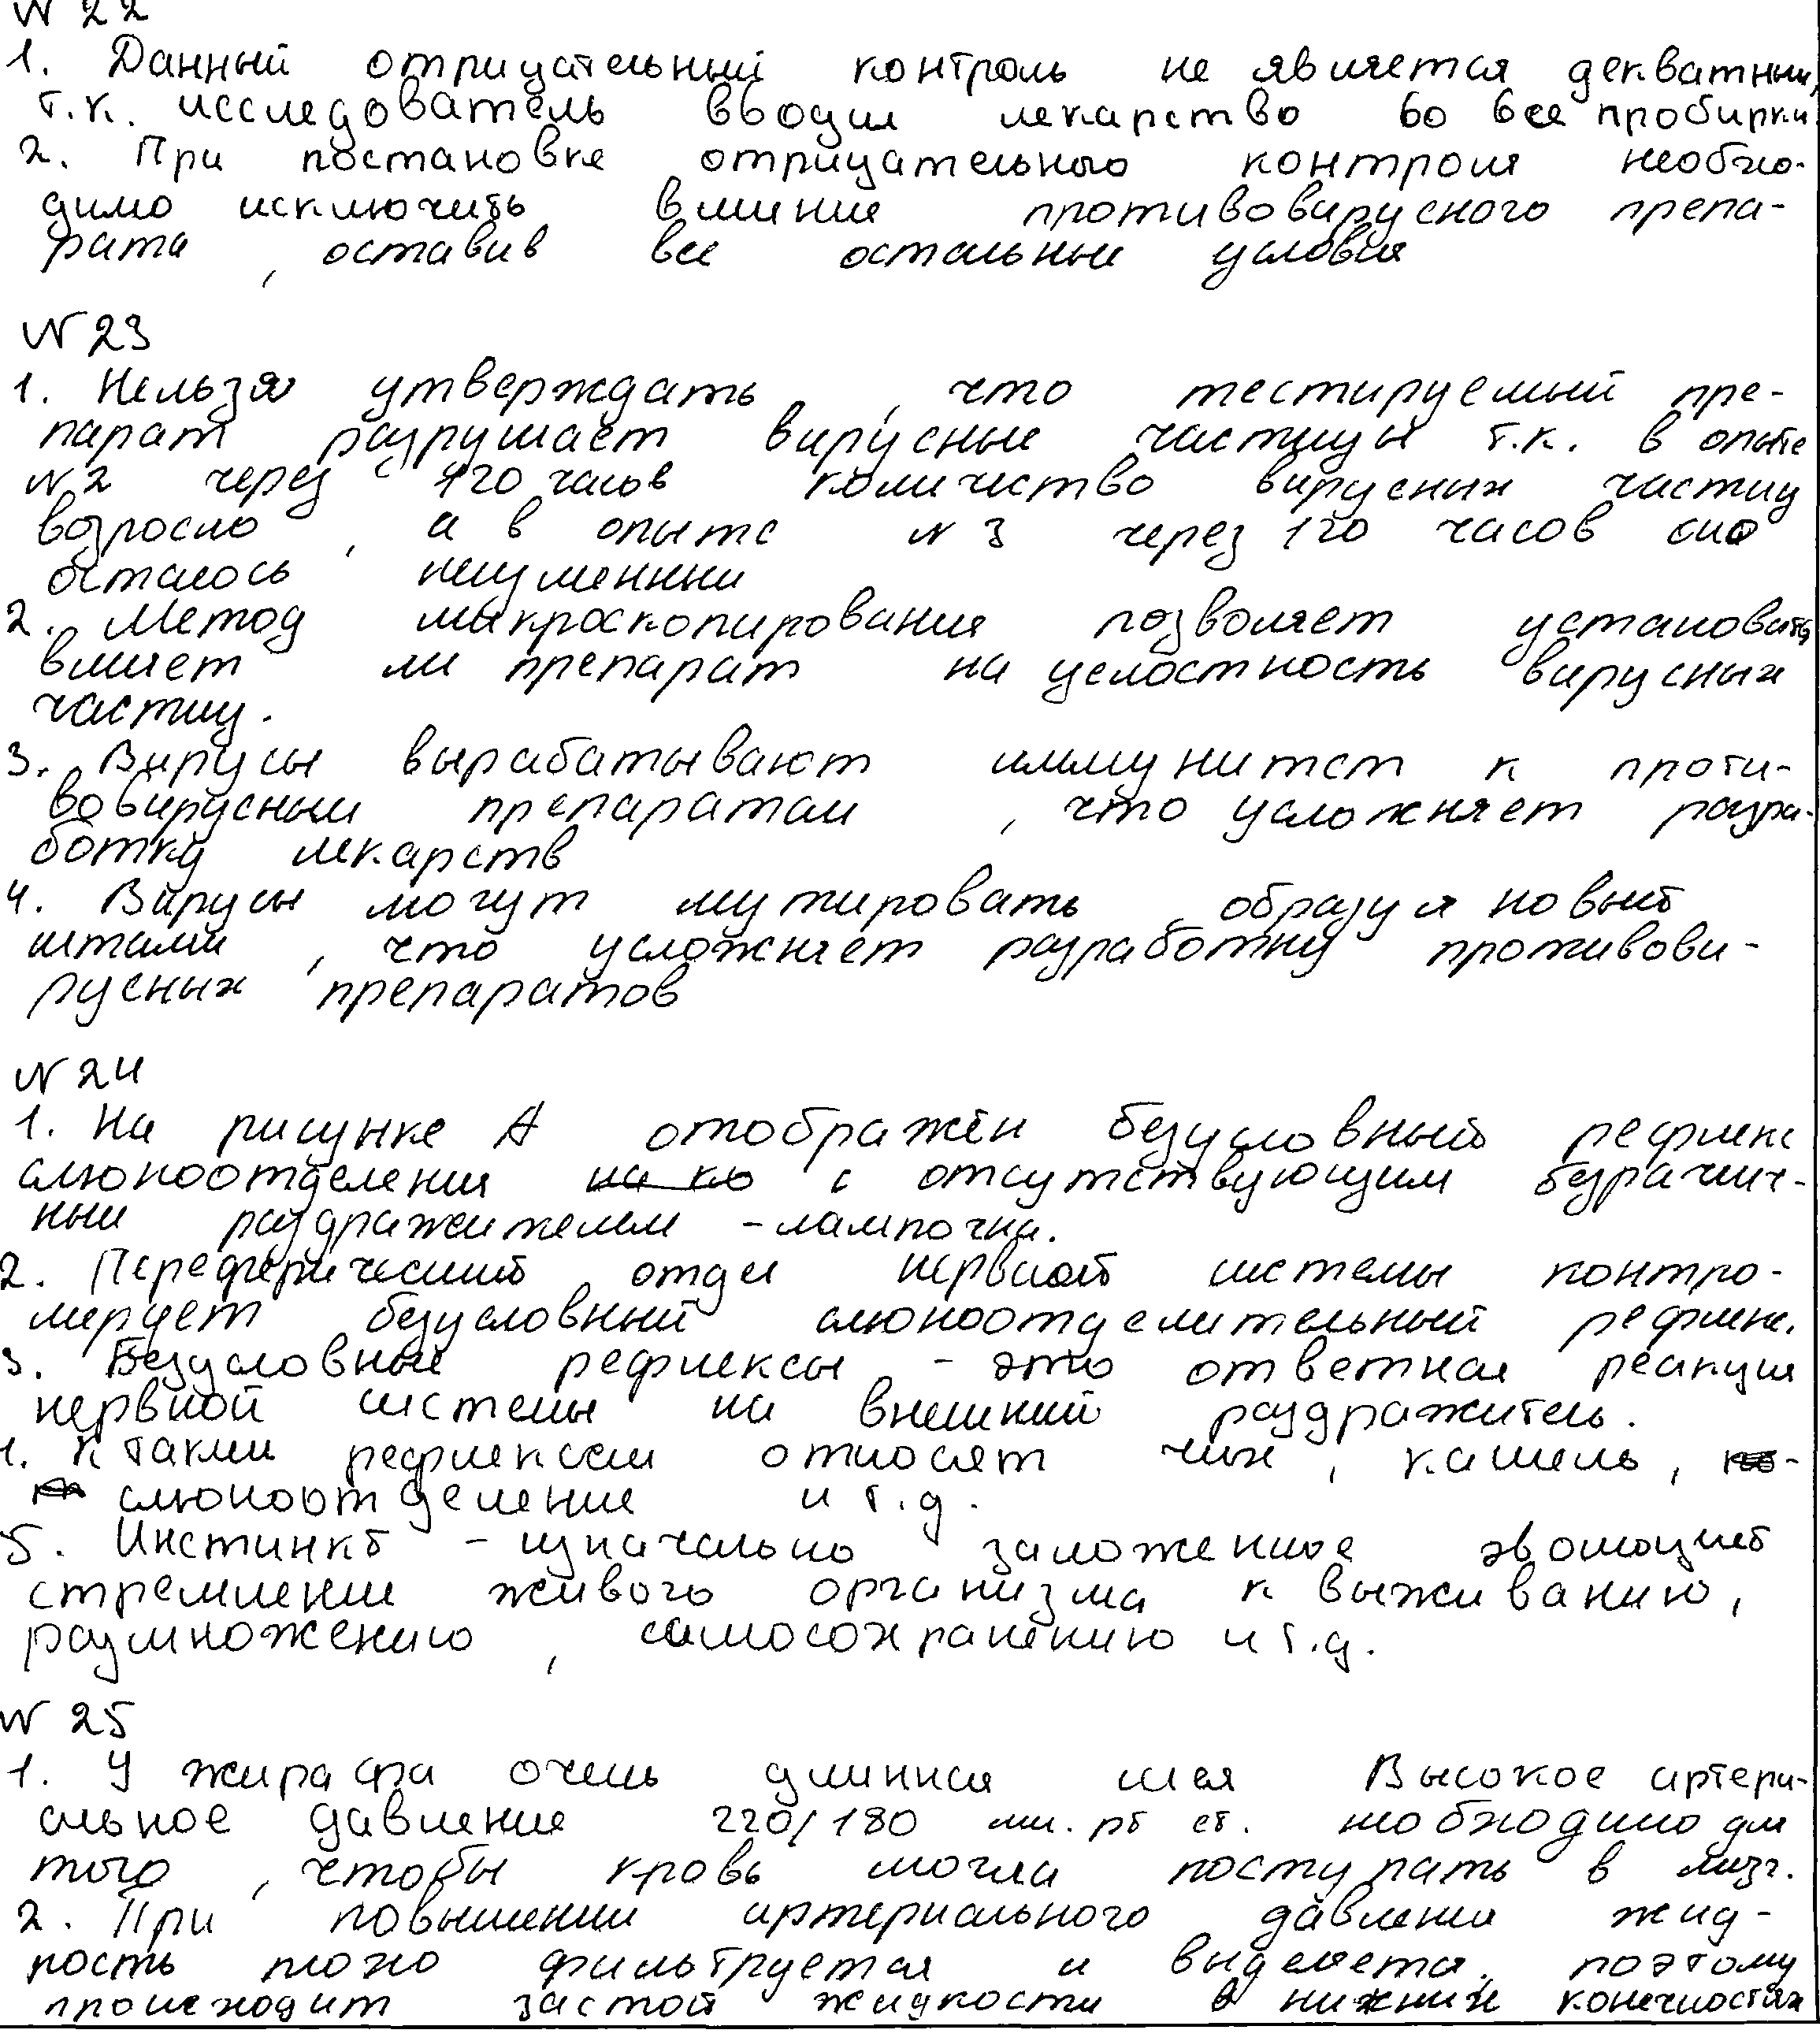 N 22
1. Данный отрицательный контроль не является декватным,
т.к. исследователь вводил лекарство во все пробирки
2. При постановке отрицательного контроля необхо-
димо исключить влияние противовирусного препа-
рата, оставив все остальные условия
N 23
1. Нельзя утверждать, что тестируемый пре-
парат разрушает вирусные частицы т.к. в опыте
N 2 через 120 часов количество вирусных частиц
возросло, а в опыте N 3 через 120 часов оно
осталось неизменным
2. Метод микроскопирования позволяет установить
влияет ли препарат на целостность вирусных
частиц.
3. Вирусы вырабатывают иммунитет к проти-
вовирусным препаратам, что усложняет разра-
ботку лекарств
4. Вирусы могут мутировать, образуя новый
штамм, что усложняет разработку противови-
русных препаратов
N 24
1. На рисунке А отображён безусловный рефлекс
слюноотделения с отсутствующим безразлич-
ным раздражителем - лампочка.
2. Переферический отдел нервной системы контро-
лирует безусловный слюноотделительный рефлекс.
3. Безусловные рефлексы - это ответная реакция
нервной системы на внешний раздражитель.
4. К таким рефлексам относят чих, кашель,
слюноотделение и т.д.
5. Инстинкт - изначально заложенное эволюцией
стремление живого организма к выживанию,
размножению, самосохранению и т.д.
N 25
1. У жирафа очень длинная шея Высокое артери-
альное давление 220/180 мм. рт ст. необходимо для
того, чтобы кровь могла поступать в мозг.
2. При повышении артериального давления жид-
кость плохо фильтруется и выделяется, поэтому
происходит застой жидкости в нижних конечностях